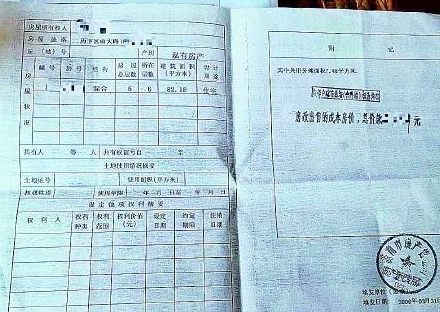 房屋所有权人
房屋坐落 历下区山大路1
丘（地）号 产别 私有房产
房屋状况 幢号 房号 结构 房屋总层数 所在层数 建筑面积（平方米） 设计用途
1 混合 6 6 82.18 住宅
共有人 等 人 共有权证号自 至
土地使用情况摘要
土地证号 使用面积（平方米）
权属性质 使用年限 年 月 日至 年 月 日
设定他项权利摘要
权利人 权利种类 权利范围 权利价值（元） 设定日期 约定期限 注销日期
附 记
其中共用分摊面积 .48平方米。
房改出售的成本价房，总价款 元
填发单位（盖章）
填发日期： 2000年03月31日